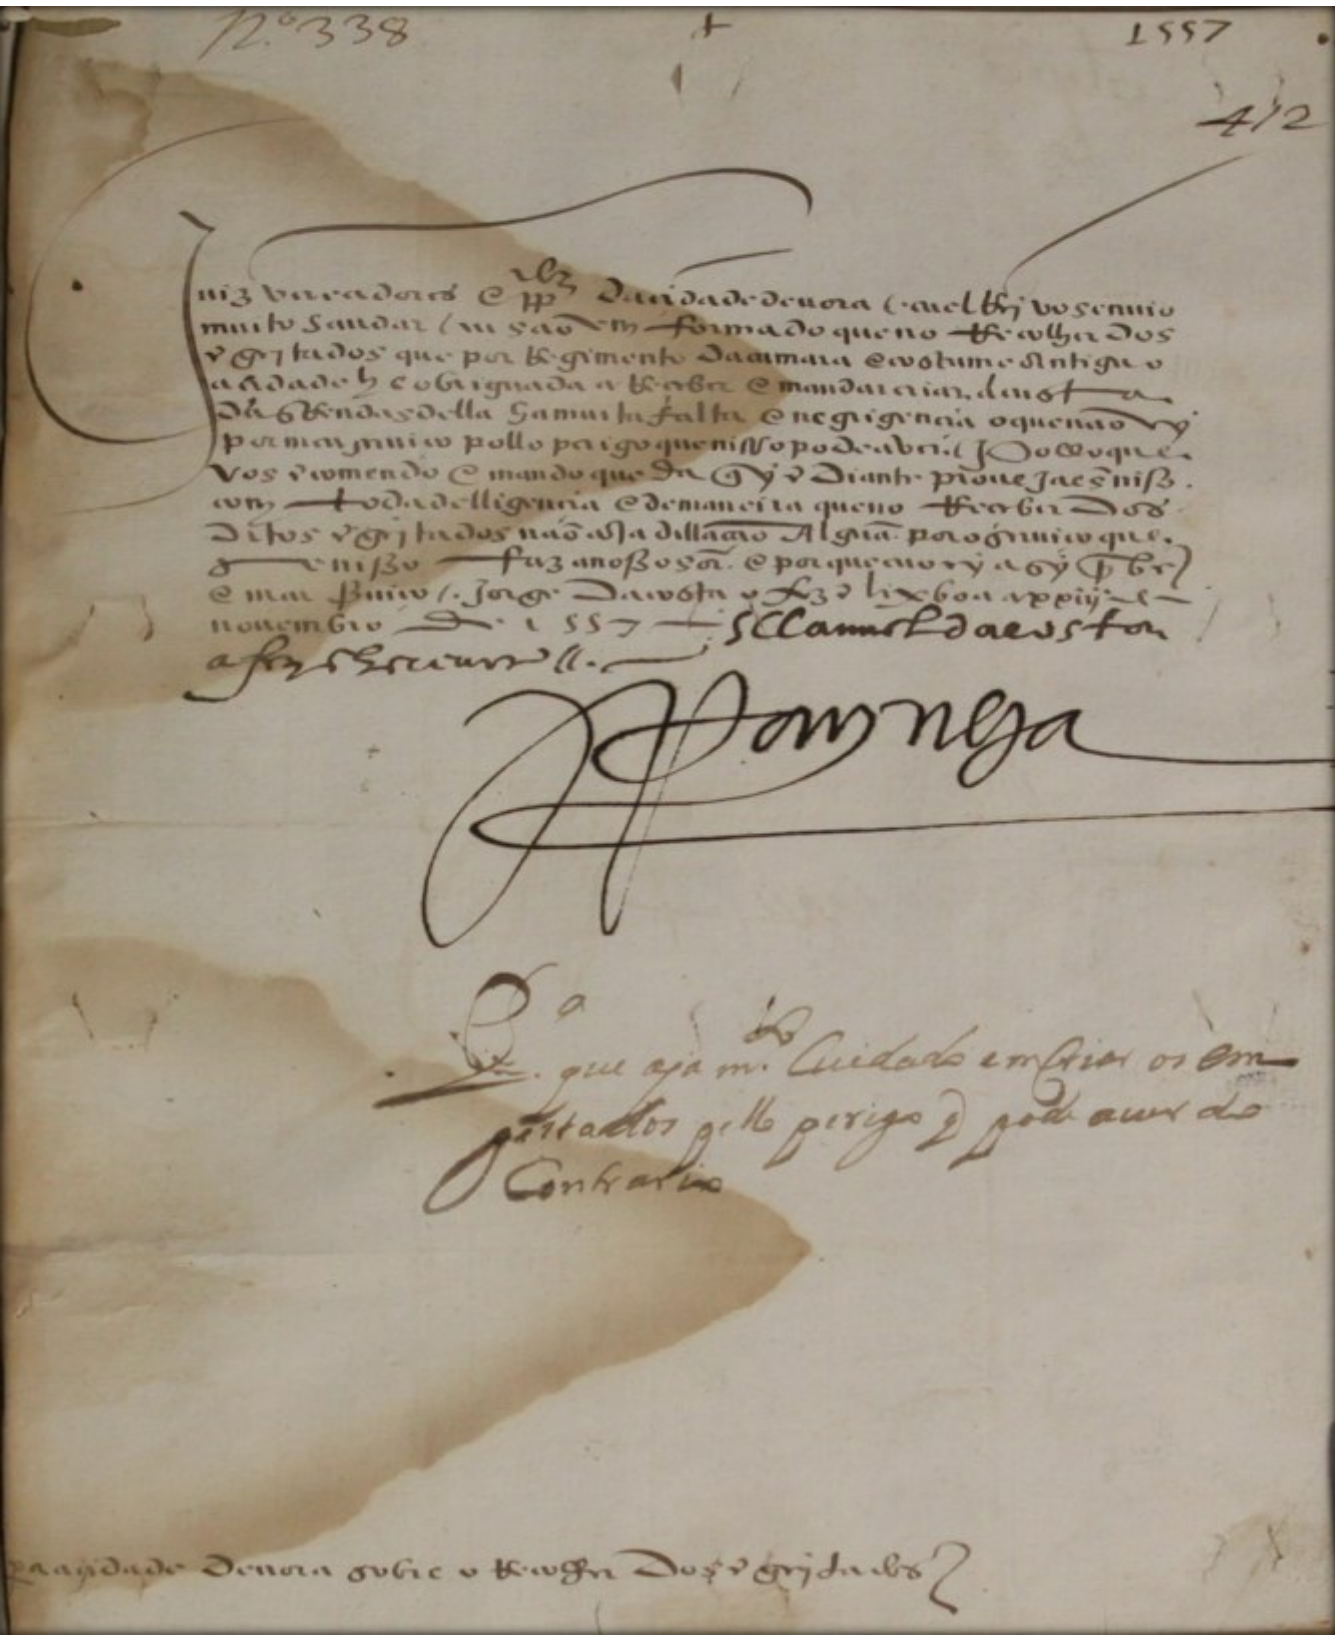 N.º 338 + 1557
412
Juiz vereadores e pp.dor da cidade devora eu elRey vos envio
muito saudar / eu são emformado que no Recolher dos
Egeitados que por Regimento da camara e costume antiguo
a cidade he obriguada a Receber e mandar criar
das Rendas della ha muita falta e negrigencia o que não ey
por meu serviço pollo perigo que nisso pode aver / Pollo que
vos encomendo e mando que daquy em Diante proveJaes nisso
com toda delligencia e de maneira que no Receber Dos
Ditos Egeitados não aJa dillação Alguã. por o serviço que
nisso faz a nosso sõr. e porque eu o ey asy por bem
e meu serviço /. Jorge Dacosta o fez em lixboa a xxiij de
novembro de 1557 Manuel dacosta
a fez escrever //.
Raynha
P.ª
que aja m.to Cuidado em Criar os em
geitados pello perigo q pode aver do
Contrario
pera a cidade Devora sobre o Recolher Dos Egeitados